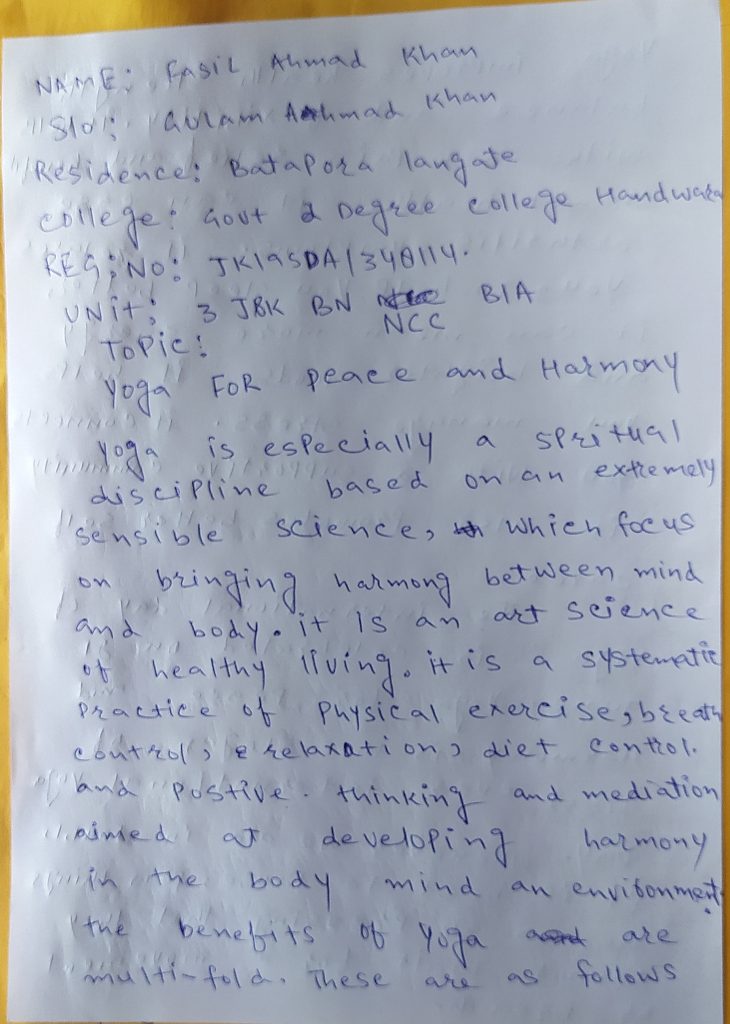 NAME: Fasil Ahmad Khan
S/o: Gulam Ahmad Khan
Residence: Batapora langate
college: Govt Degree college Handwara
REG; NO: JK19SDA1340114.
UNit: 3 J&K BN NCC BLA
Topic:
Yoga FOR peace and Harmony
Yoga is especially a spritual
discipline based on an extremely
sensible science, which focus
on bringing harmong between mind
and body. it is an art science
of healthy living. it is a systematic
Practice of Physical exercise, breath
control, relaxation, diet control.
and Postive. thinking and mediation
aimed at developing harmony
in the body mind an environment.
the benefits of Yoga are
multi-fold. These are as follows